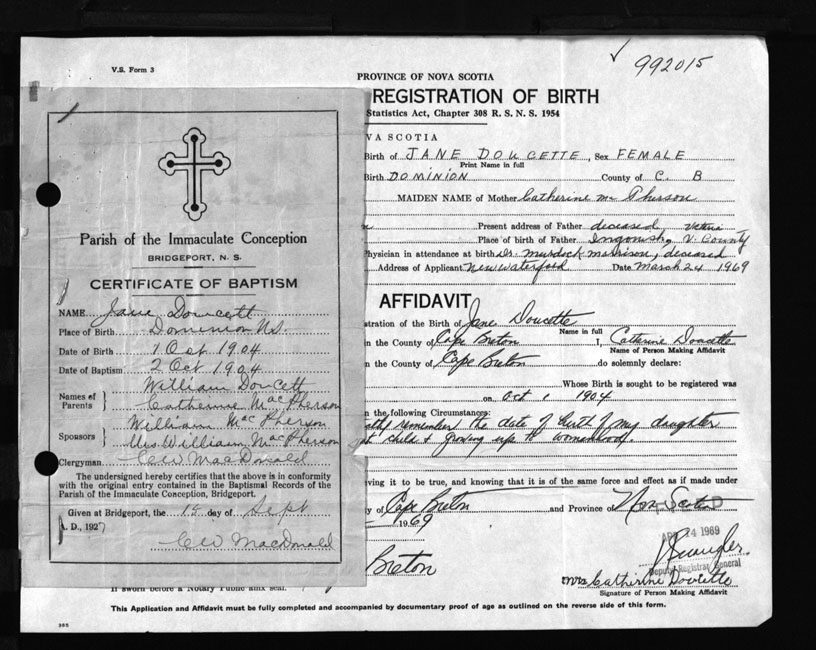 V.S. Form 3
992015
PROVINCE OF NOVA SCOTIA
REGISTRATION OF BIRTH
Statistics Act, Chapter 308 R. S. N. S. 1954
VA SCOTIA
Birth of JANE DOUCETTE, Sex FEMALE
Print Name in full
Birth DOMINION County of C. B
MAIDEN NAME of Mother Catherine Mc Pherson
Present address of Father deceased Victoria
Place of birth of Father Ingonish, V. County
Physician in attendance at birth Dr. Murdock Morrison, deceased
Address of Applicant New Waterford Date March 24 1969
AFFIDAVIT
stration of the Birth of Jane Doucette
Name in full
in the County of Cape Breton I, Catherine Doucette
Name of Person Making Affidavit
in the County of Cape Breton do solemnly declare:
Whose Birth is sought to be registered was
on Oct 1 1904
in the following Circumstances:
remember the date of birth of my daughter
child & growing up to womanhood.
ving it to be true, and knowing that it is of the same force and effect as if made under
y of Cape Breton and Province of Nova Scotia
1969
APR 24 1969
Deputy Registrar General
Breton
Mrs Catherine Doucette
Signature of Person Making Affidavit
If sworn before a Notary Public affix seal.
This Application and Affidavit must be fully completed and accompanied by documentary proof of age as outlined on the reverse side of this form.
Parish of the Immaculate Conception
BRIDGEPORT, N. S.
CERTIFICATE OF BAPTISM
NAME Jane Doucett
Place of Birth Dominion N.S.
Date of Birth 1 Oct 1904
Date of Baptism 2 Oct 1904
Names of Parents William Doucett
Catherine MacPherson
Sponsors William MacPherson
Mrs William MacPherson
Clergyman CW MacDonald
The undersigned hereby certifies that the above is in conformity
with the original entry contained in the Baptismal Records of the
Parish of the Immaculate Conception, Bridgeport.
Given at Bridgeport, the day of Sept
A. D., 1927
CW MacDonald